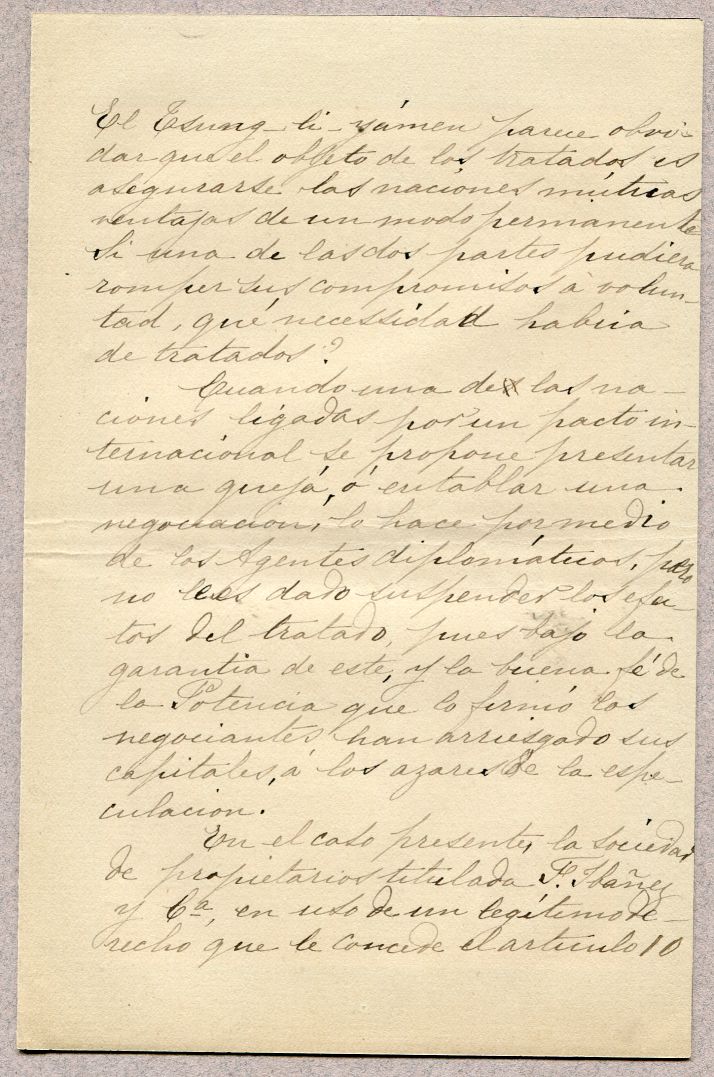 El Tsung-li-yámen parece obvi-
dar que el objeto de los tratados es
asegurarse las naciónes mútuas
ventajas de un modo permanente
Si una de las dos partes pudiera
romper sus compromisos à volun-
tad, qué necessidad habria
de tratados?
Cuando una de las na-
ciones ligadas por un pacto in-
ternacional se propone presentar
una queja, ó entablar una
negociacion, lo hace por medio
de los Agentes diplomáticos, pero
no le es dado suspender los efec-
tos del tratado, pues bajo la
garantia de este, y la buena fé de
la Potencia que lo firmó los
negociantes han arriesgado sus
capitales, á los azares de la espe-
culacion.
En el caso presente, la sociedad
de propietarios titulada F. Ibañez
y Cª, en uso de un legítimo de-
recho que le concede el articulo 10